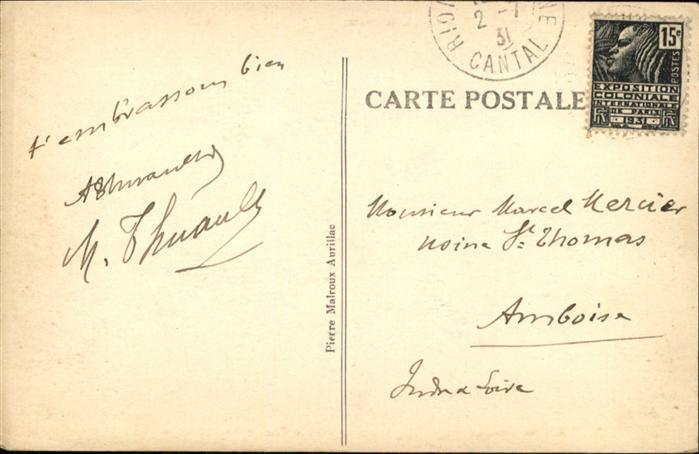 t'embrassons bien
AThuault
M. Thuault
Pierre Malroux Aurillac
RIO NE
2 -1
31
CANTAL
CARTE POSTALE
15c
POSTES
EXPOSITION
COLONIALE
INTERNATIONALE
DE PARIS
1931
Monsieur Marcel Mercier
Usine St Thomas
Amboise
Indre & Loire